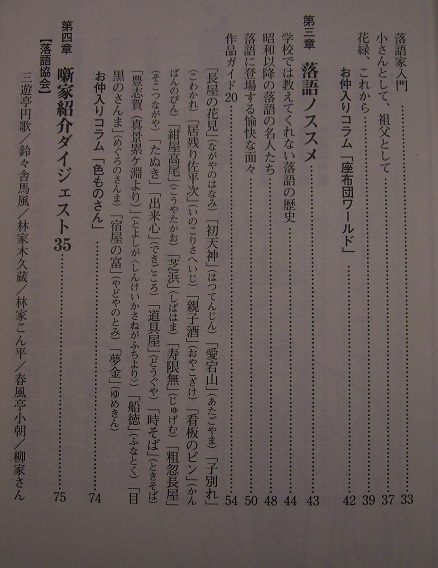 落語家入門……………33
小さんとして、祖父として……………37
花緑、これから……………39
お仲入りコラム「座布団ワールド」……………42
第三章 落語ノススメ……………43
学校では教えてくれない落語の歴史……………44
昭和以降の落語の名人たち……………48
落語に登場する愉快な面々……………50
作品ガイド20……………54
「長屋の花見」(ながやのはなみ)「初天神」(はつてんじん)「愛宕山」(あたごやま)「子別れ」
(こわかれ)「居残り佐平次」(いのこりさへいじ)「親子酒」(おやこざけ)「看板のピン」(かん
ばんのぴん)「紺屋高尾」(こうやたかお)「芝浜」(しばはま)「寿限無」(じゅげむ)「粗忽長屋」
(そこつながや)「たぬき」「出来心」(できごころ)「道具屋」(どうぐや)「時そば」(ときそば)
「豊志賀(真景累ケ淵より)」(とよしが〈しんけいかさねがふちより〉)「船徳」(ふなとく)「目
黒のさんま」(めぐろのさんま)「宿屋の富」(やどやのとみ)「夢金」(ゆめきん)
お仲入りコラム「色ものさん」……………74
第四章 噺家紹介ダイジェスト35……………75
【落語協会】
三遊亭円歌/鈴々舎馬風/林家木久蔵/林家こん平/春風亭小朝/柳家さん